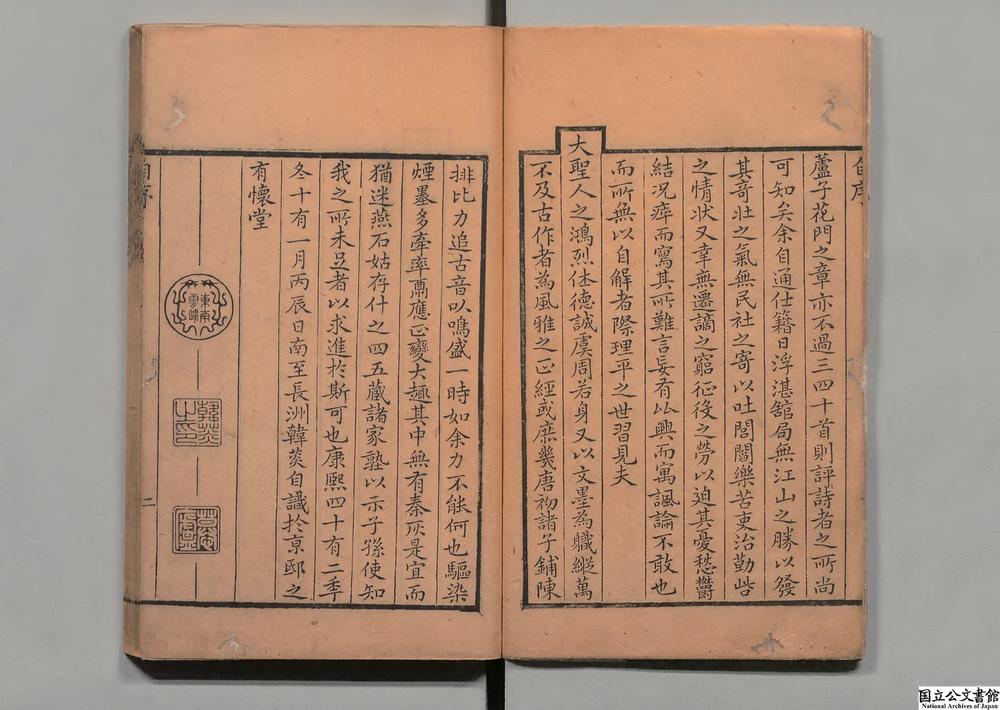 自序
蘆子花門之章亦不過三四十首則評詩者之所尚
可知矣余自通仕籍日浮湛舘局無江山之勝以發
其竒壯之氣無民社之寄以吐閭閻樂苦吏治勤呰
之情狀又幸無遷謫之窮征役之勞以迫其憂愁鬱
結况瘁而寫其所難言妄有比興而寓諷論不敢也
而所無以自解者際理平之世習見夫
大聖人之鴻烈体德誠虞周若身又以文墨為職縱萬
不及古作者為風雅之正經或庶幾唐初諸子鋪陳
排比力追古音以鳴盛一時如余力不能何也驅染
煙墨多牽率酬應正變大趣其中無有秦灰是宜而
猶迷燕石姑存什之四五藏諸家塾以示子孫使知
我之所未足者以求進於斯可也康熙四十有二季
冬十有一月丙辰日南至長洲韓菼自識於京邸之
有懷堂
東南雲峰
韓菼之印
慕廬
自序
二
国立公文書館
National Archives of Japan